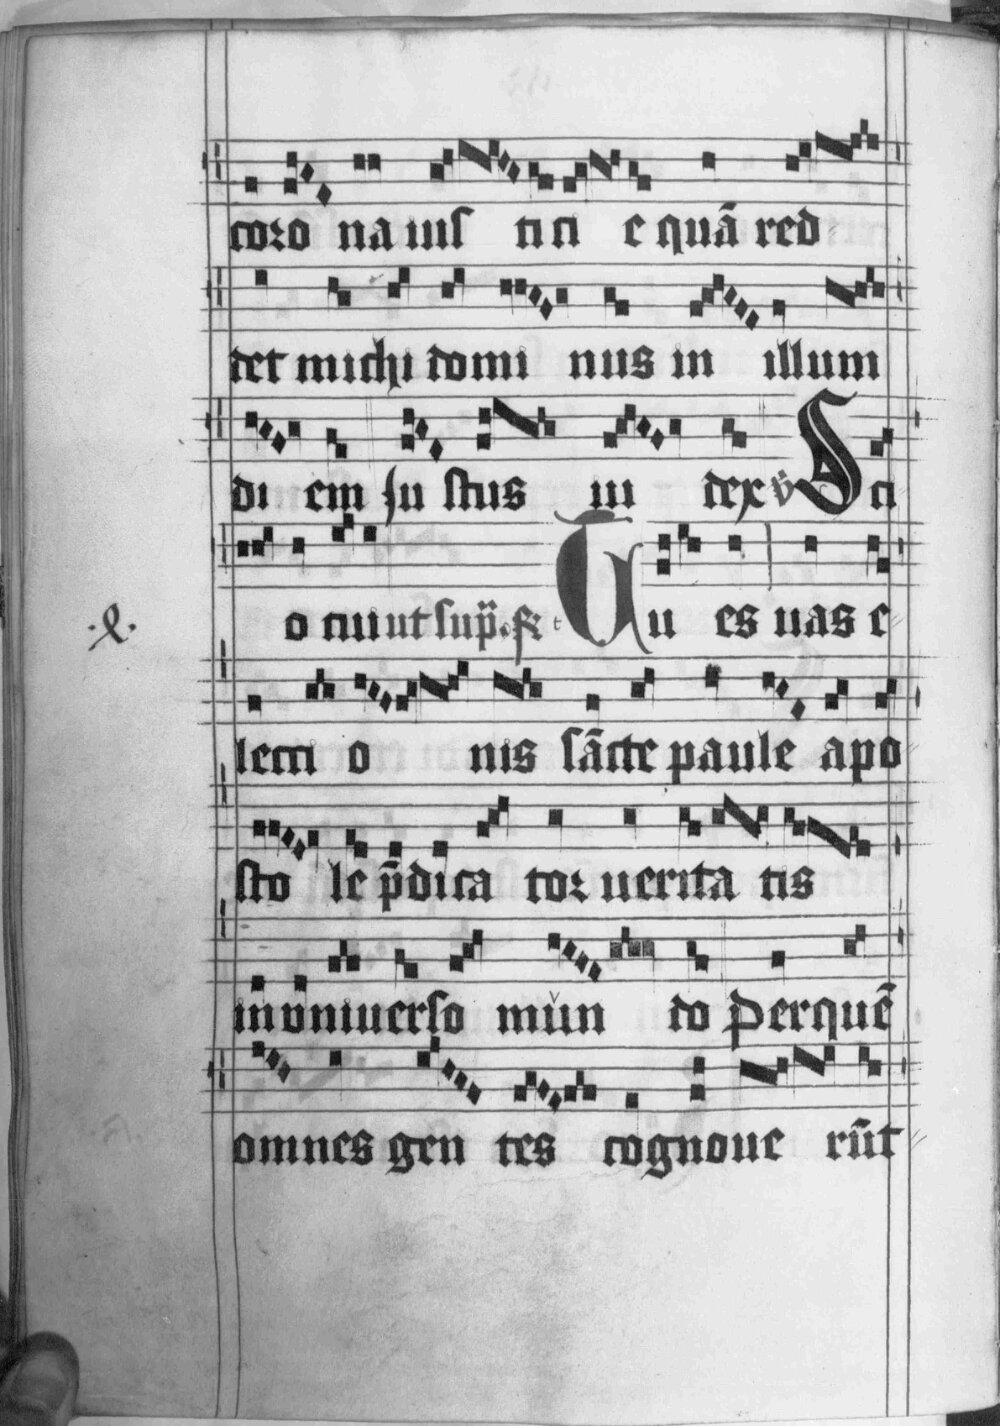 coro na ius ti ci e quā red
det michi domi nus in illum
di em Ju stus iu dex ℣ Sci
o cui ut sup̄. ℟ Tu es uas e
.l.
lecti o nis sācte paule apo
sto le p̄dica tor uerita tis
in vniuerso mun do Per quē
omnes gen tes cognoue rūt